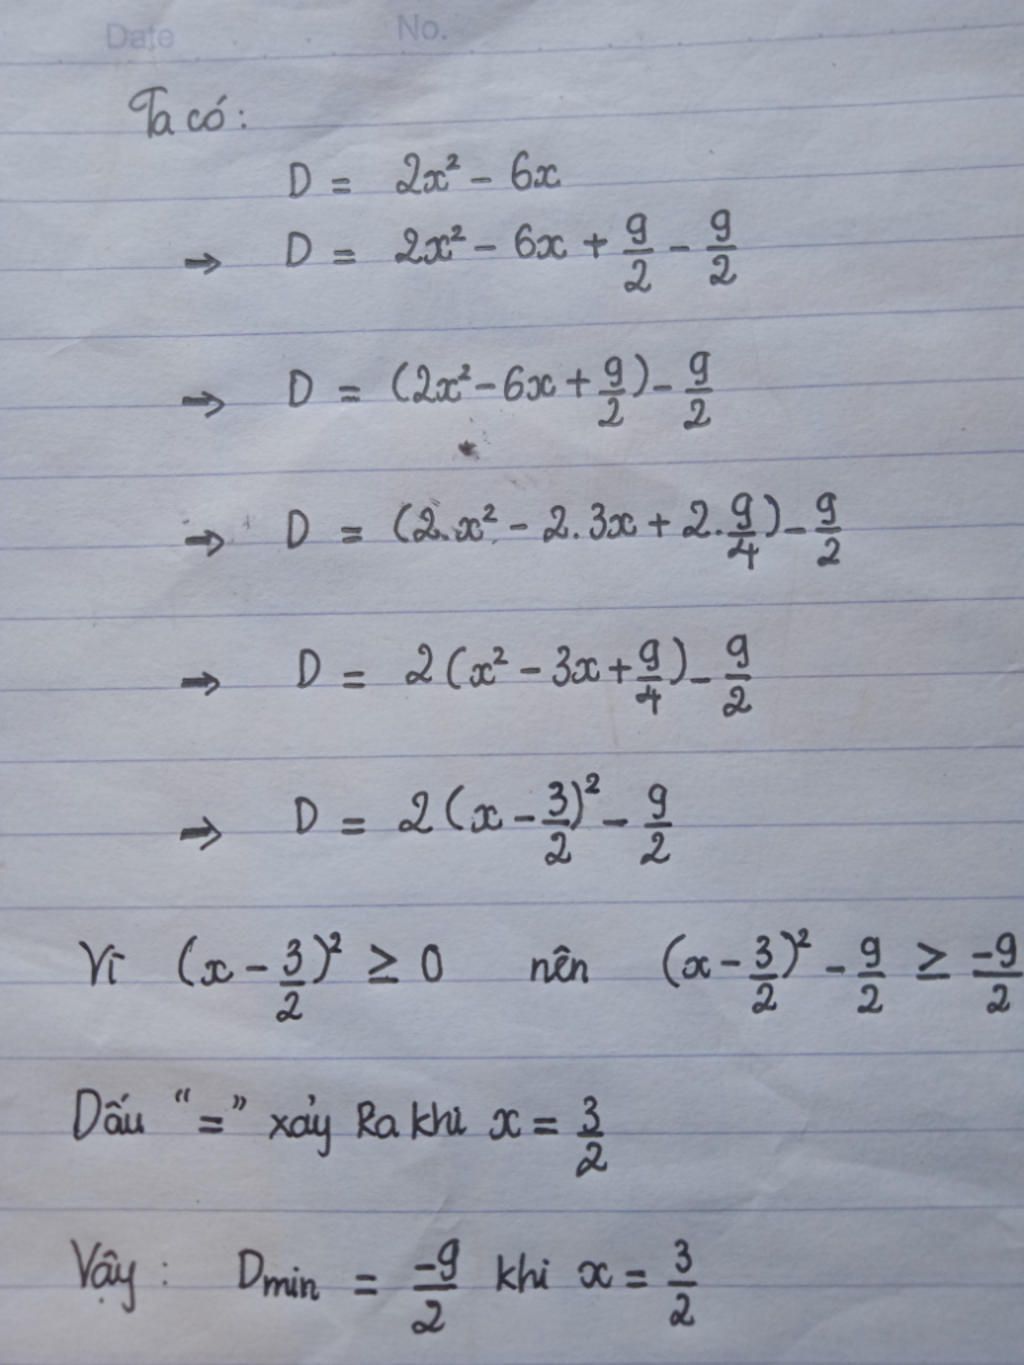 Date No.
Ta có:
D = 2x² - 6x
⇒ D = 2x² - 6x + 9/2 - 9/2
⇒ D = (2x² - 6x + 9/2) - 9/2
⇒ D = (2.x² - 2.3x + 2.9/4) - 9/2
⇒ D = 2(x² - 3x + 9/4) - 9/2
⇒ D = 2(x - 3/2)² - 9/2
Vì (x - 3/2)² ≥ 0 nên (x - 3/2)² - 9/2 ≥ -9/2
Dấu “=” xảy Ra khi x = 3/2
Vậy : Dmin = -9/2 khi x = 3/2